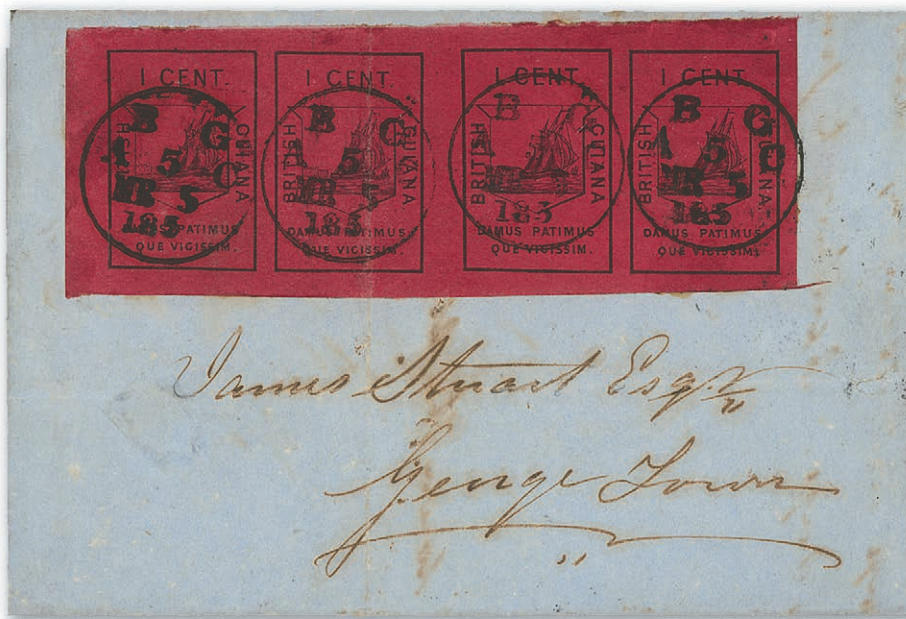 1 CENT.
BRITISH
GUIANA
DAMUS PATIMUS
QUE VIGISSIM.
B G
A 5 O
MR 5
185
1 CENT.
BRITISH
GUIANA
DAMUS PATIMUS
QUE VIGISSIM.
B G
5
MR 5
185
1 CENT.
BRITISH
GUIANA
DAMUS PATIMUS
QUE VIGISSIM.
B
185
1 CENT.
BRITISH
GUIANA
DAMUS PATIMUS
QUE VIGISSIM.
B G
A 5 O
MR 5
185
James Stuart Esqr
George Town